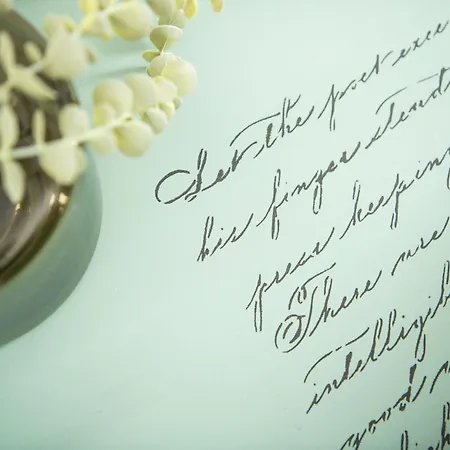 Let the poet exe
his finger stead
pres keeping
There are
intelligib
good